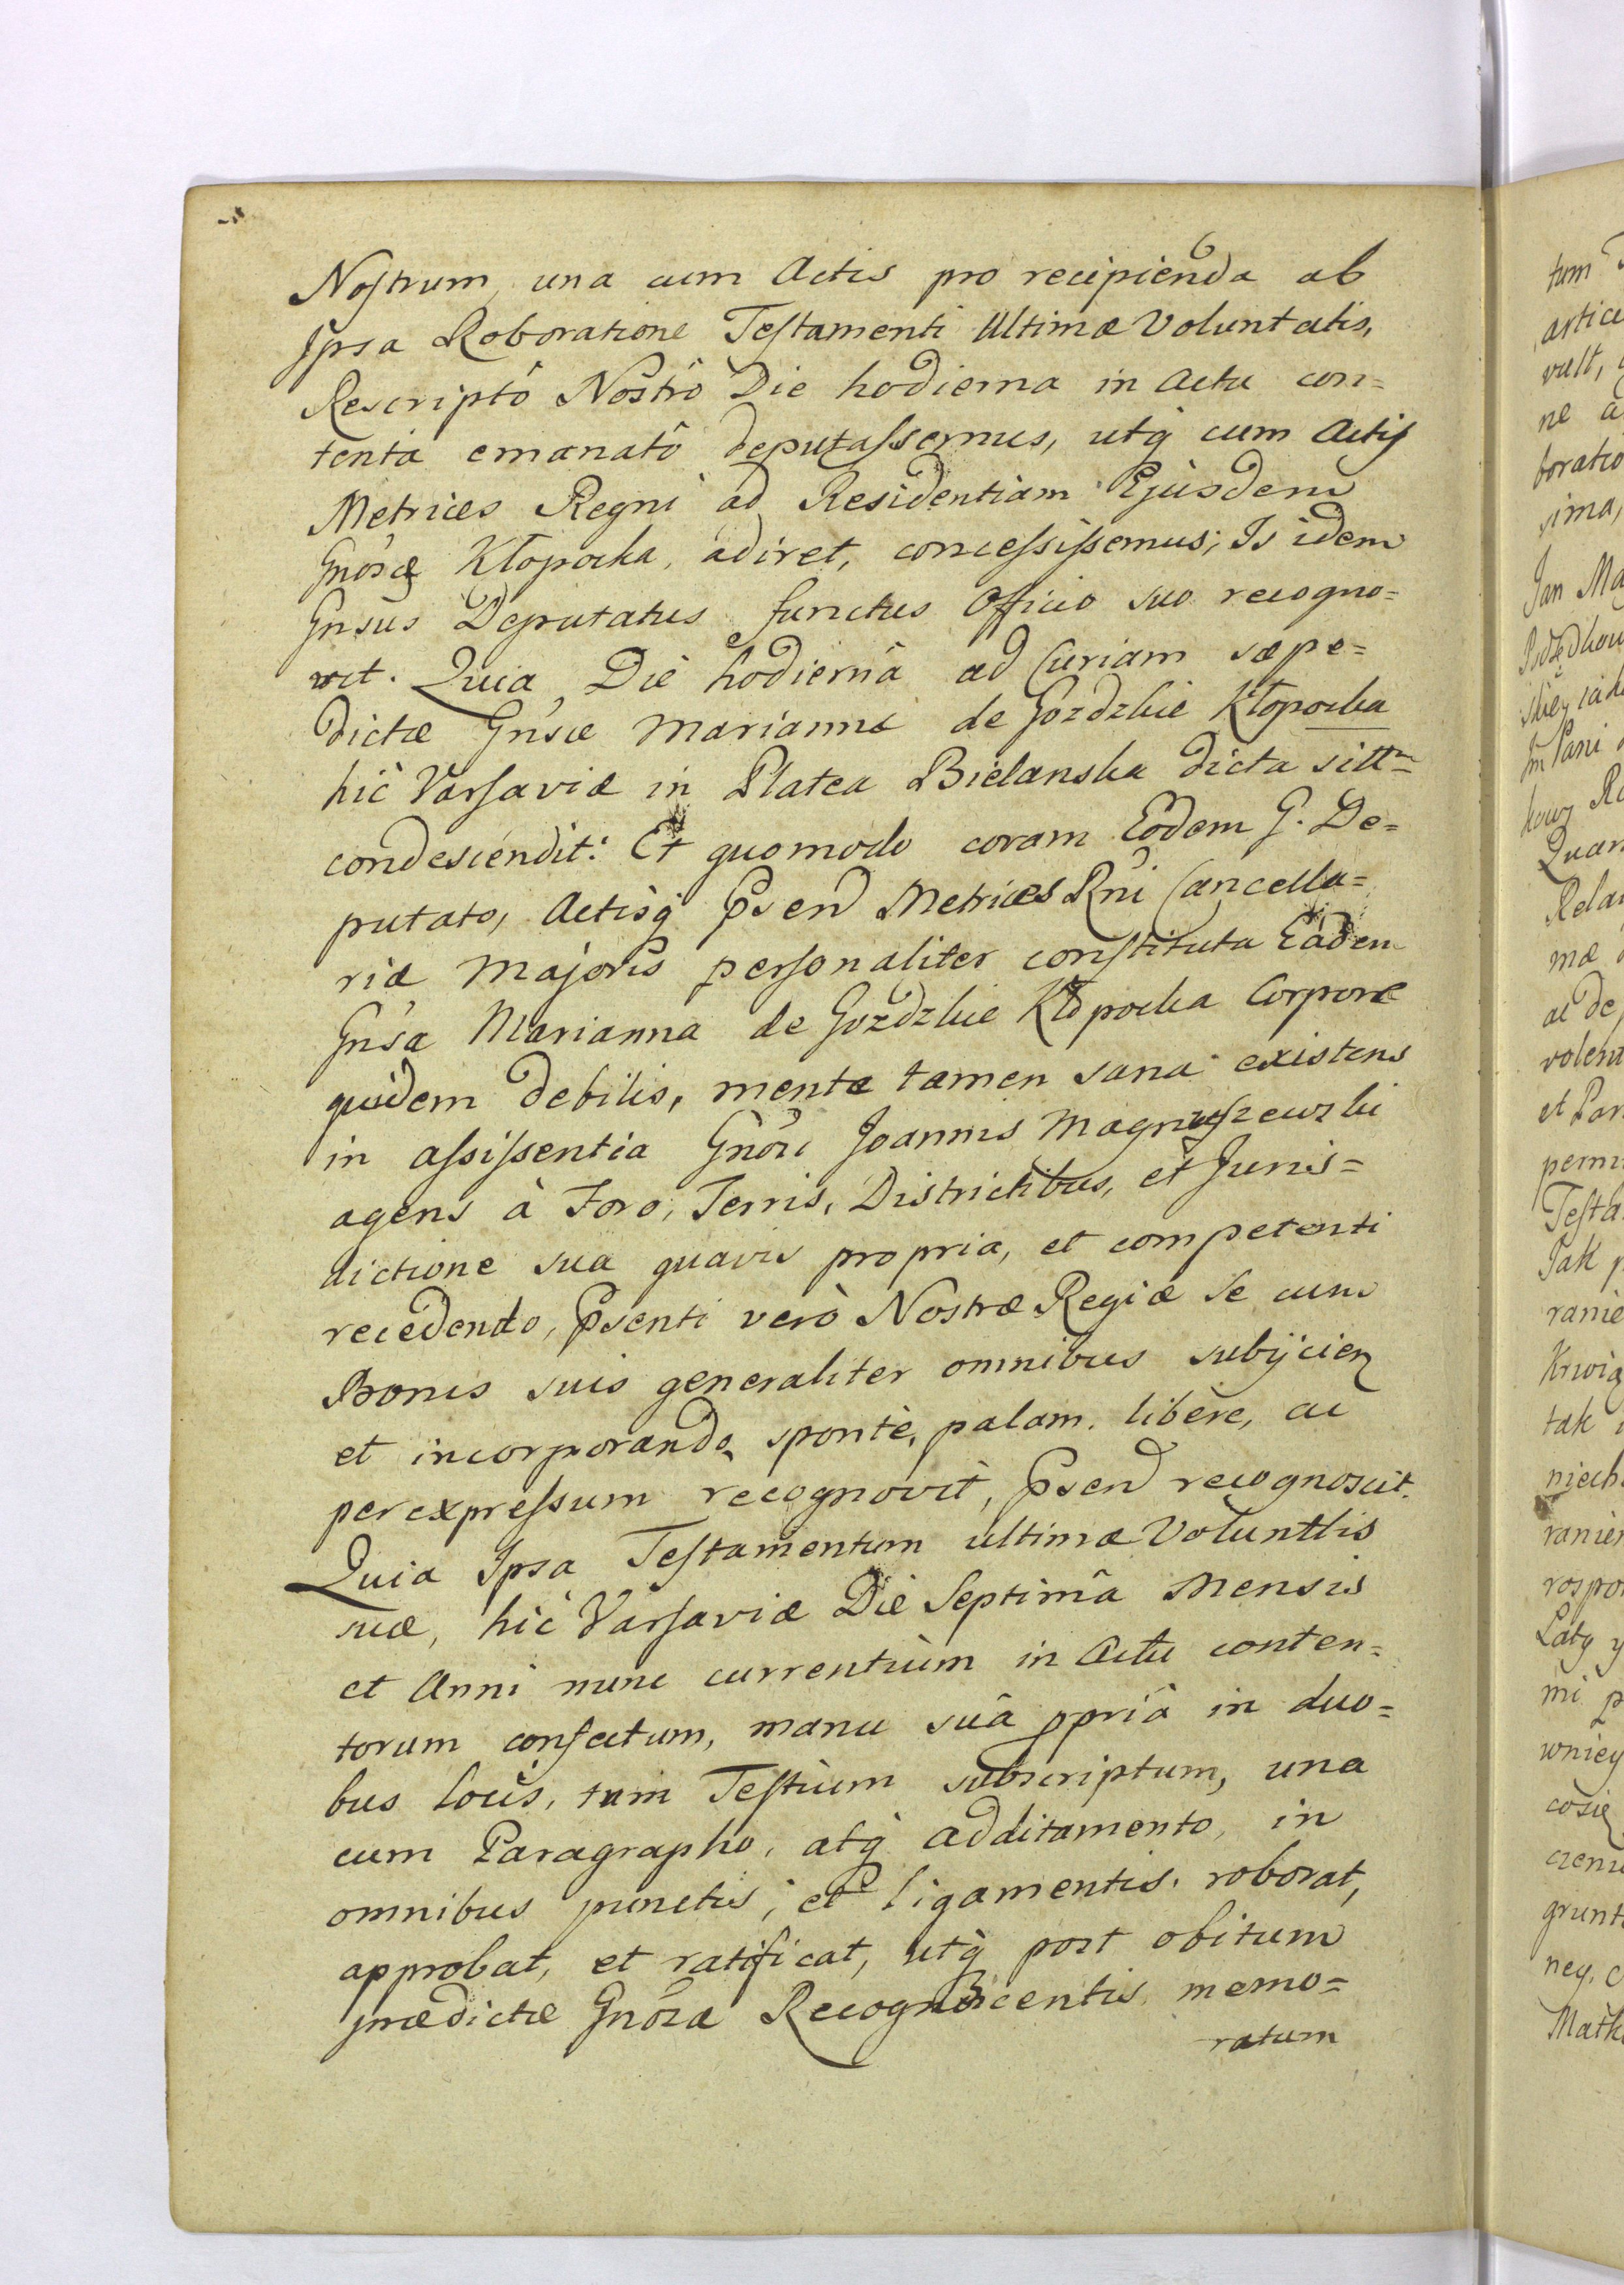 Nostrum, una cum Actis pro recipienda ab
Ipsa Roboratione Testamenti Ultimæ Voluntatis,
Rescriptô Nostrô Die hodierna in Actu con=
tenta emanatô deputassemus, utq̀ cum Actis
Metrices Regni ad Residentiam Ejusdem
Gnosæ Kłopocka, adiret, concessissemus; Is idem
Gnsus Deputatus functus Officio suo recogno=
vit. Quia Diè hodiernâ ad Curiam sæpe=
dictæ Gnsæ Marianna de Gozdzkie Kłopocka
hic Varsaviæ in Platea Bielanska dicta sittm=
condescendit: Et quomodo coram Eodem G. De=
putato, Actisq̀ Psend Metrices Rni Cancella=
riæ Majoris personaliter constituta Eadem
Gnsa Marianna de Gozdzkie Kłopocka Corpore
quidem debilis, mente tamen sana existens
in assissentia Gnosi Joannis Magnuszewski
agens à Foro, Terris, Districtibus, et Juris=
dictione sua quavis propria, et competenti
recedendo, Psenti verò Nostræ Regiæ se cum
Bonis suis generaliter omnibus subijcien
et incorporando, sponte, palam, liberè, ac
per expressum recognovit, Psend recognoscit.
Quia Ipsa Testamentum ultimæ Volunttis
suæ, hic Varsaviæ Die Septimâ Mensis
et Anni nunc currentium in Actu conten=
torum confectum, manu suâ ppriâ in duo=
bus locis, tum Testium subscriptum, una
cum Paragrapho, atq̀ additamento, in
omnibus punctis, et ligamentis, roborat,
approbat, et ratificat, utq̀ post obitum
prædictæ Gnosæ Recognoscentis memo=
ratum
tum
vult,
boratio
sima,
Jan
Relat
mæ
Testa
Jak
tak
niech
wniey
Math